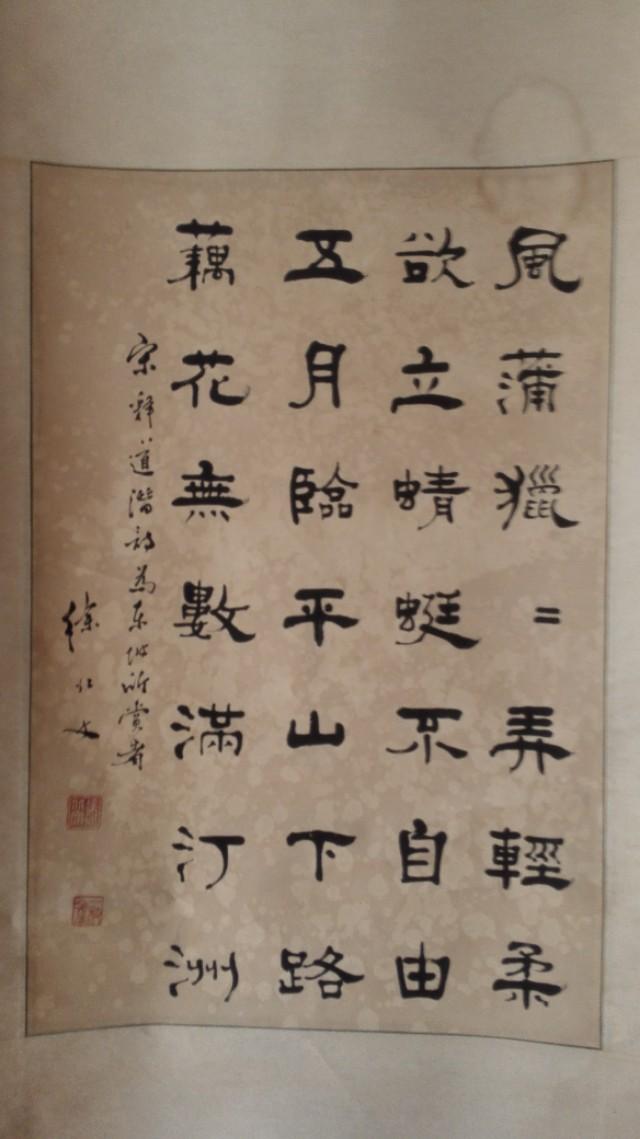 風蒲獵=弄輕柔
欲立蜻蜓不自由
五月臨平山下路
藕花無數滿汀洲
宋釋道潛詩為東坡所賞者
徐仁文